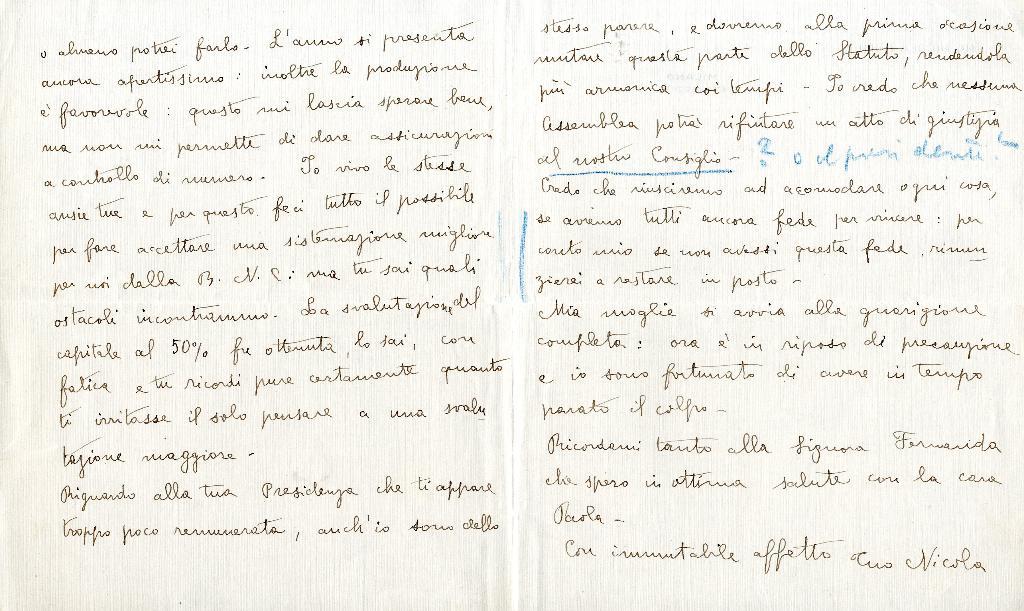 o almeno potrei farlo - L'anno si presenta
ancora apertissimo : inoltre la produzione
è favorevole : questo mi lascia sperare bene,
ma non mi permette di dare assicurazioni
a controllo di numero. Io vivo le stesse
ansie tue e per questo feci tutto il possibile
per fare accettare una sistemazione migliore
per noi dalla B. N. C : ma tu sai quali
ostacoli incontrammo. La svalutazione del
capitale al 50% fu ottenuta, lo sai, con
fatica e tu ricordi pure certamente quanto
ti irritasse il solo pensare a una svalu
tazione maggiore -
Riguardo alla tua Presidenza che ti appare
troppo poco remunerata, anch'io sono dello
stesso parere, e dovremo alla prima ocasione
mutare questa parte dello Statuto, rendendola
più armonica coi tempi - Io credo che nessuna
Assemblea potrà rifiutare un atto di giustizia
al nostro Consiglio - ? o il
Credo che riusciremo ad acomodare ogni cosa,
se avremo tutti ancora fede per vincere : per
conto mio se non avessi questa fede, rinun
zierei a restare in posto -
Mia moglie si avvia alla guarigione
completa : ora è in riposo di precauzione
e io sono fortunato di avere in tempo
parato il colpo -
Ricordami tanto alla Signora Fernanda
che spero in ottima salute con la cara
Paola -
Con immutabile affetto tuo Nicola